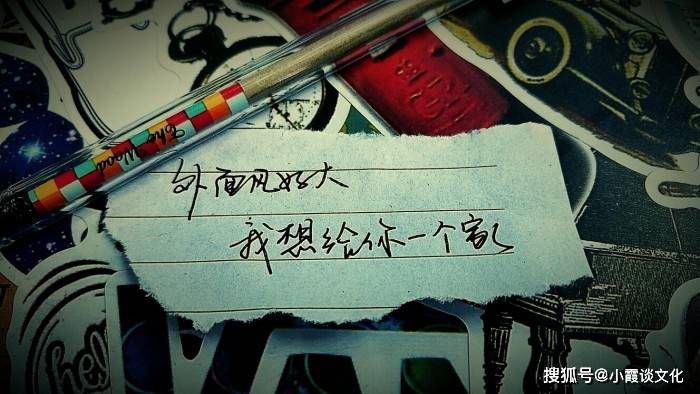 The Wood
外面风好大
我想给你一个家
hel
搜狐号@小霞谈文化